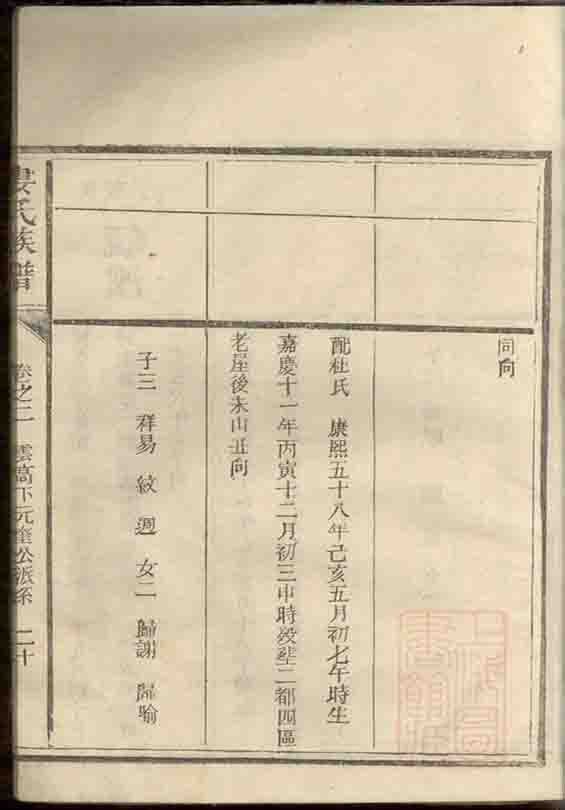 同向
配杜氏 康熙五十八年己亥五月初七午時生
嘉慶十一年丙寅十二月初三申時歿塟二都四區
老屋後未山丑向
子三 祥易 紋 週 女二 歸謝 歸喻
婁氏族譜 卷之二 雲高下元奎公派系 二十
上海圖書館藏